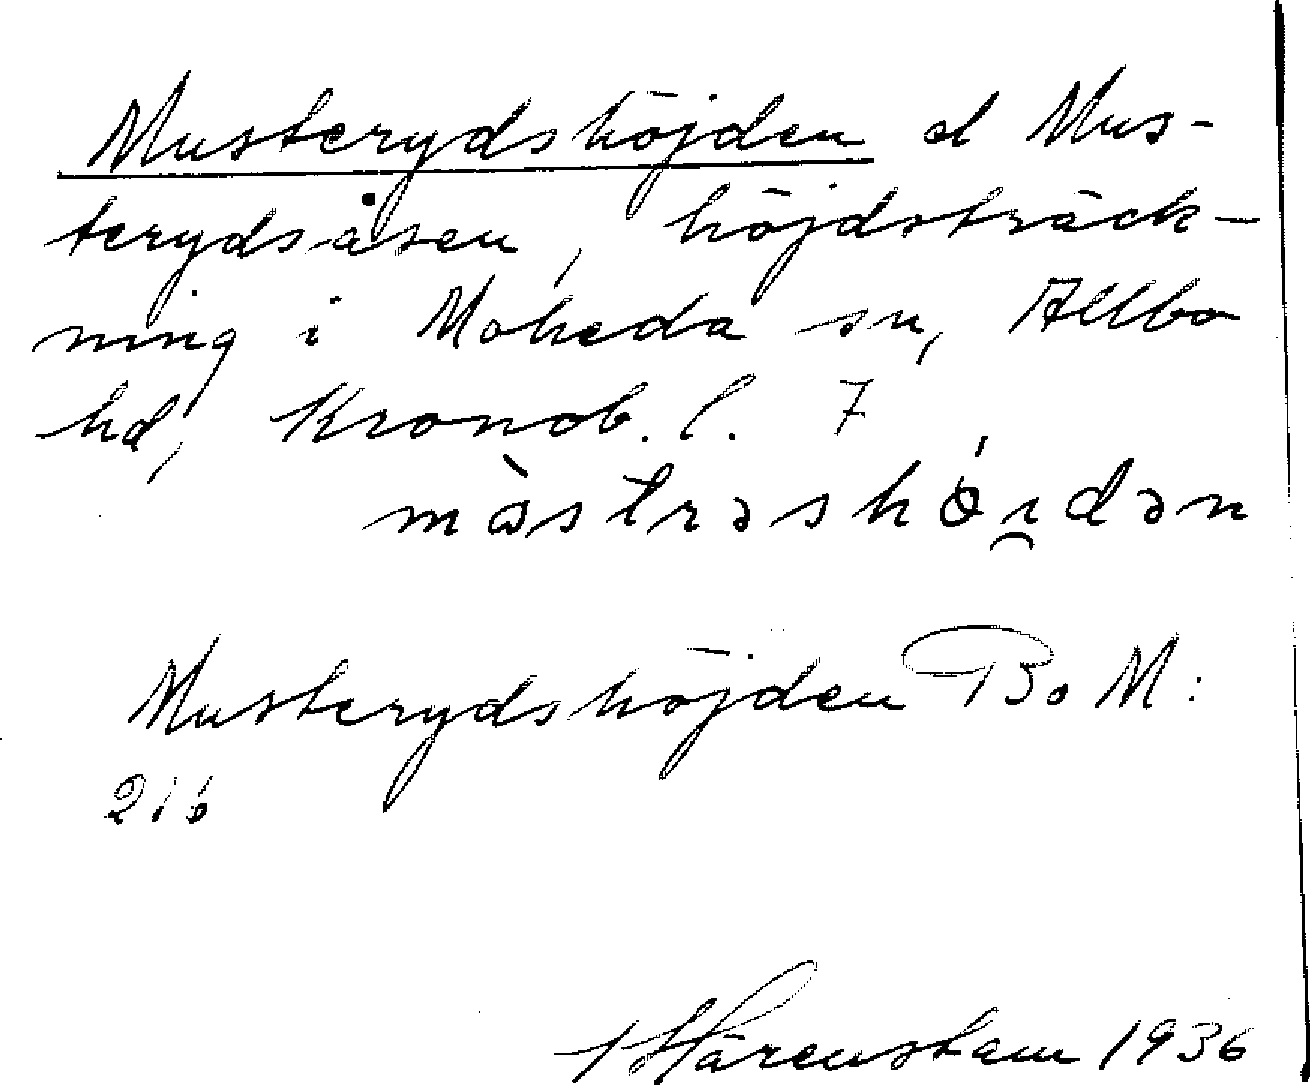 Musterydshöjden el Mus-
terydsåsen, höjdsträck-
ning i Moheda sn, Allbo
hd, Kronob. l. 7
màstrəshǿi̯dən
Musterydshöjden Bo M:
216
Härenstam 1936